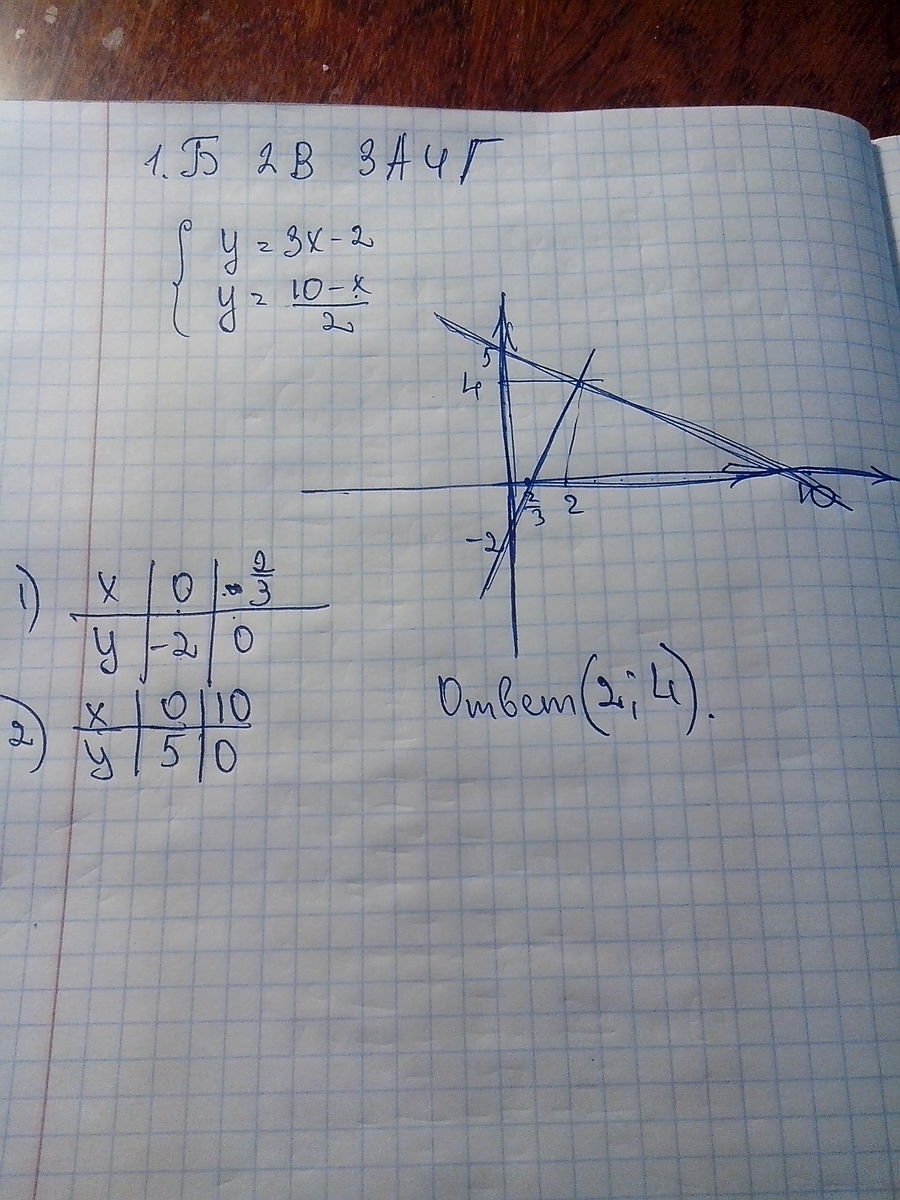 1. Б 2 В 3 А 4 Г
{ y = 3x - 2
y = (10 - x)/2
5
4
-2
2/3 2 10
1) x | 0 | 2/3
y | -2 | 0
2) x | 0 | 10
y | 5 | 0
Ответ (2; 4).